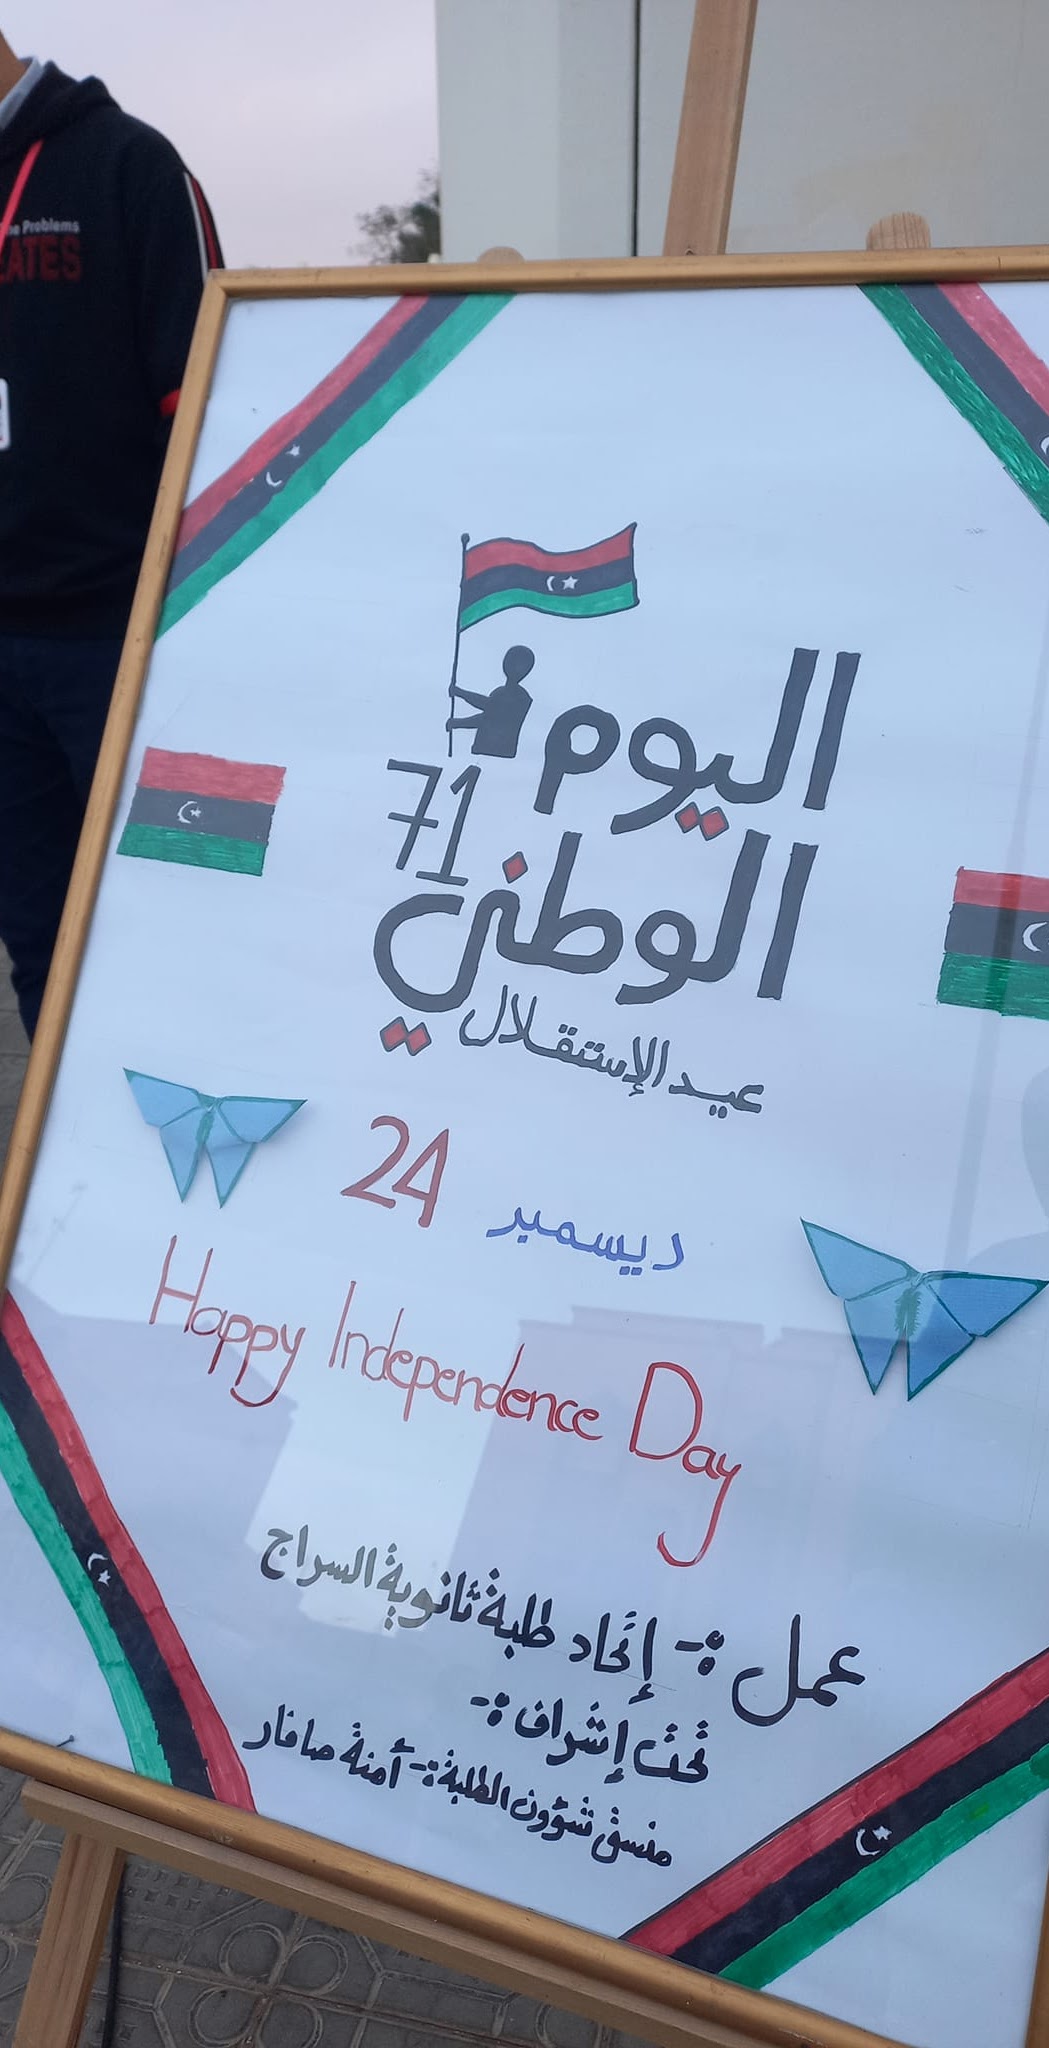 he Problems
EATES
اليوم
71
الوطني
عيد الإستقلال
24 ديسمبر
Happy Independence Day
عمل :- إتحاد طلبة ثانوية السراج
تحت إشراف :-
منسق شؤون الطلبة :- أمنة صافار